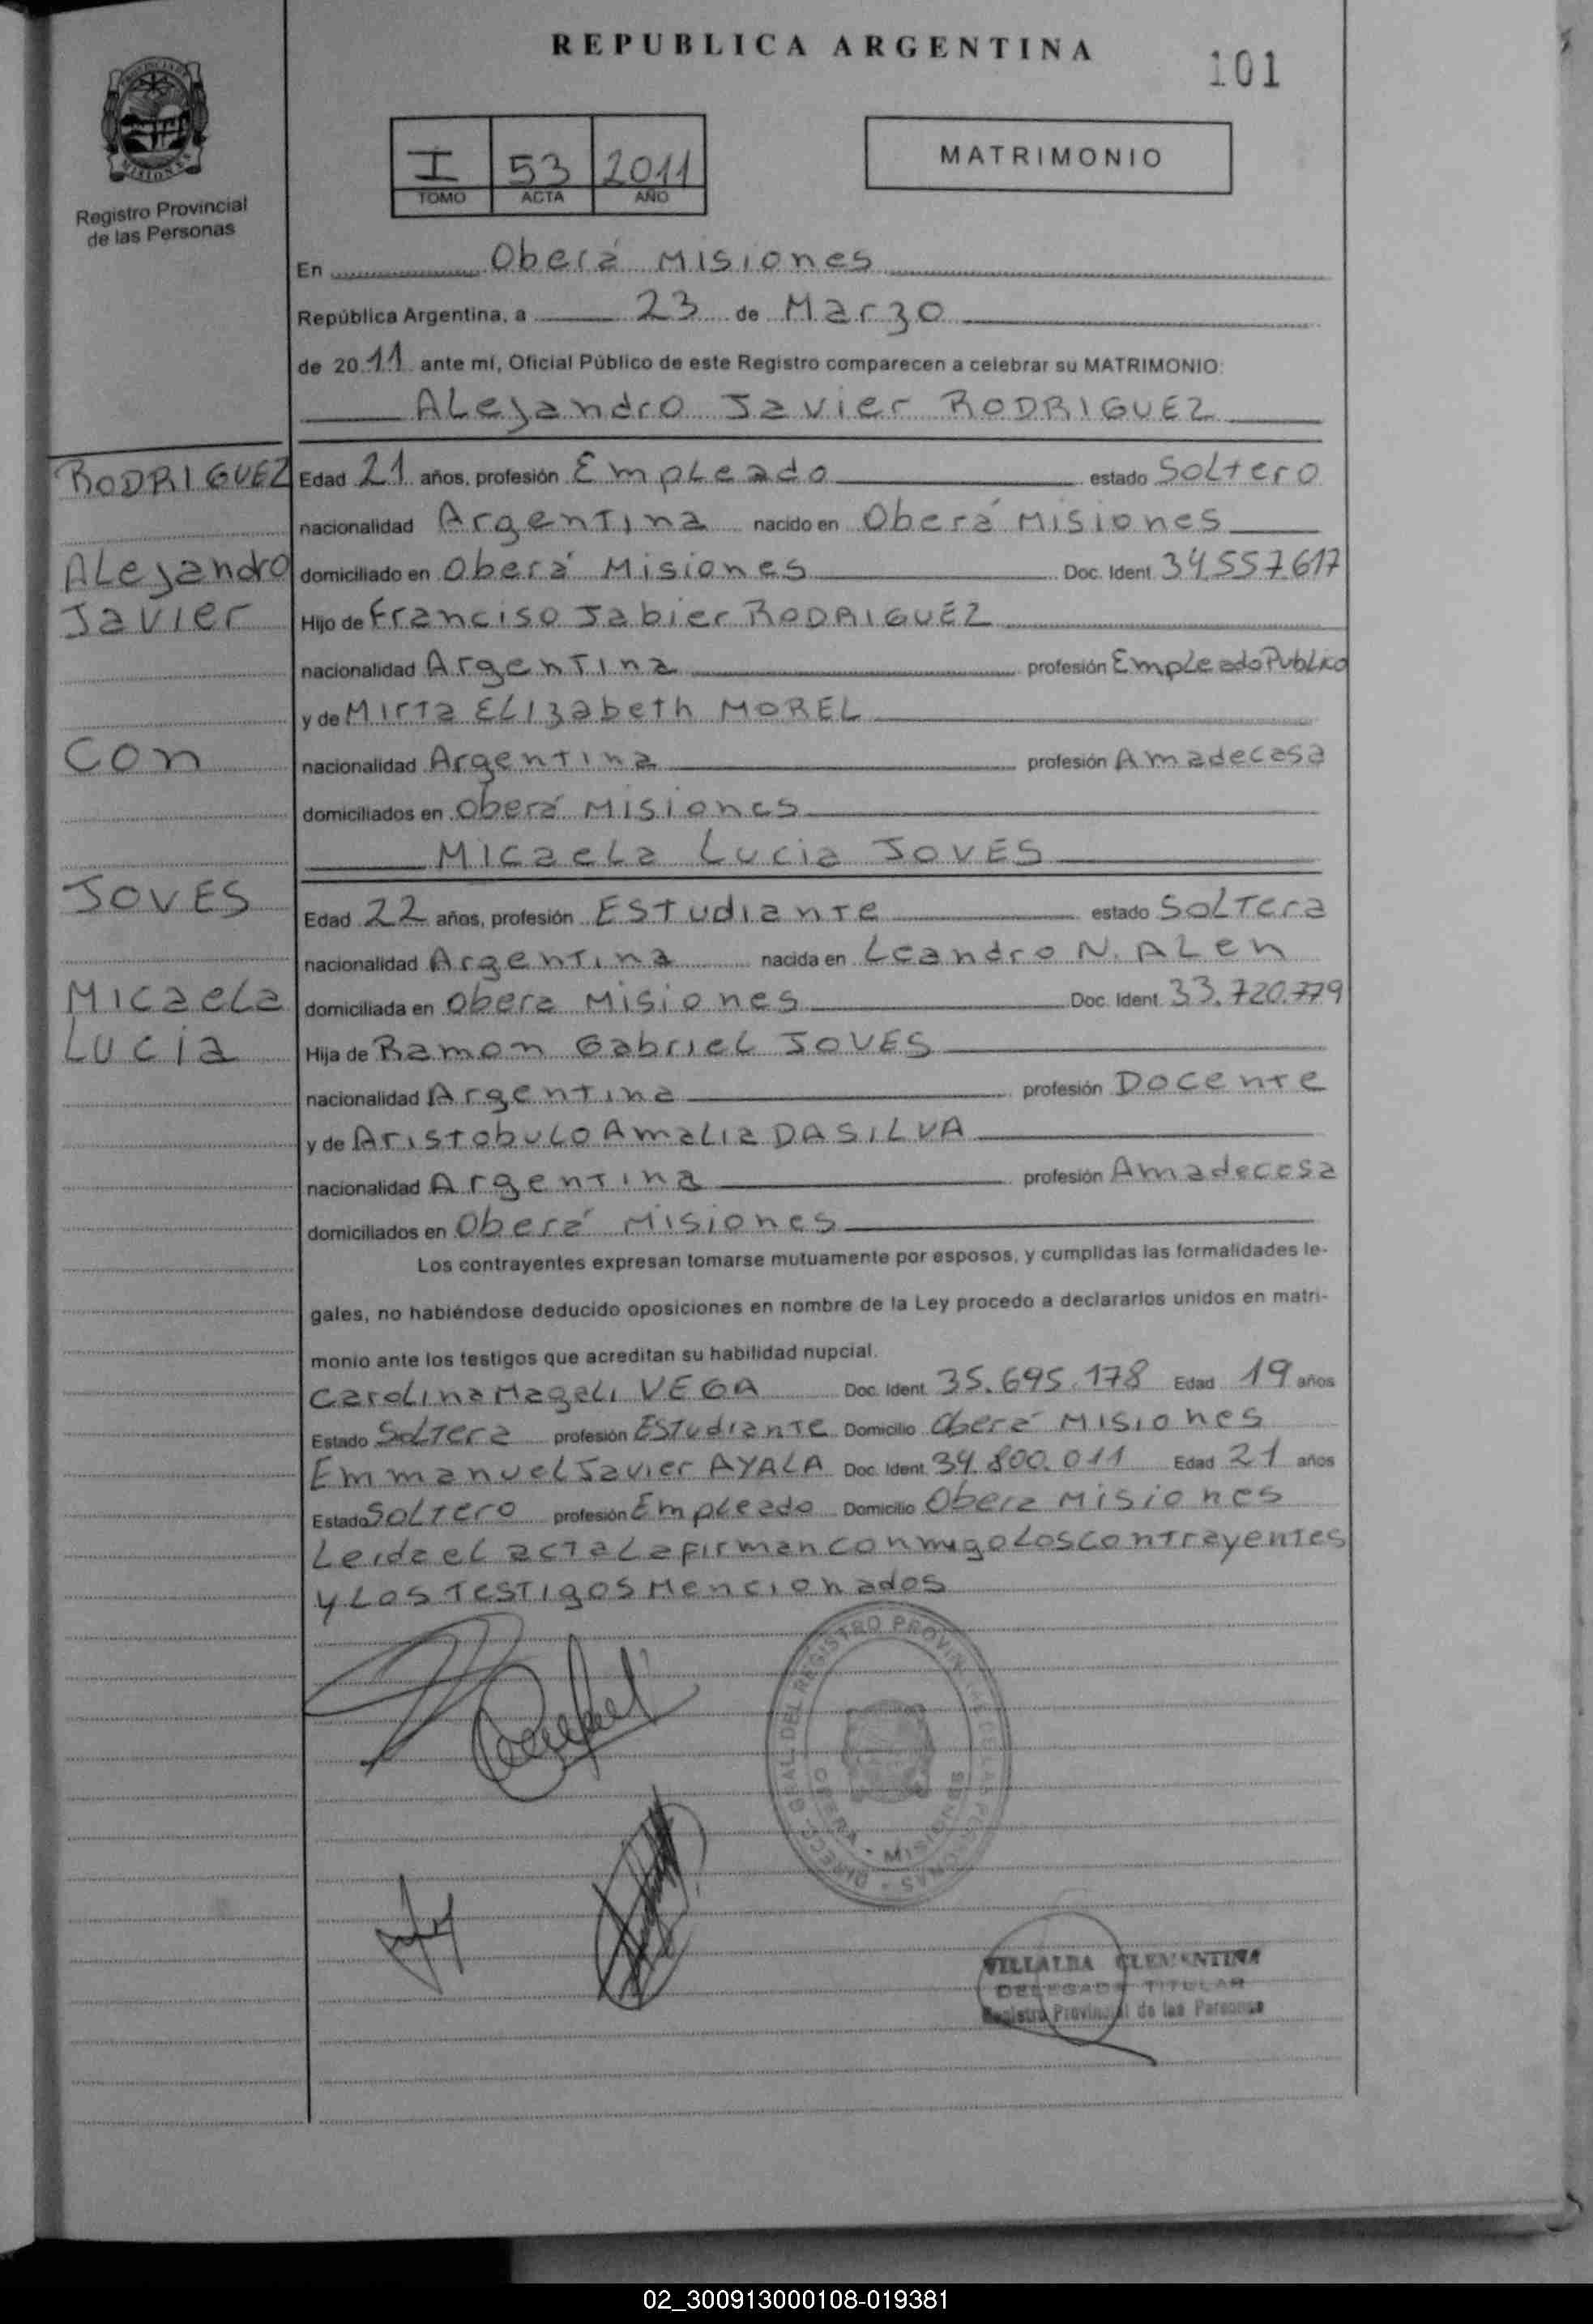 REPUBLICA ARGENTINA
101
I 53 2011
TOMO ACTA AÑO
MATRIMONIO
MISIONES
Registro Provincial
de las Personas
En Oberá Misiones
República Argentina, a 23 de Marzo
de 2011 ante mí, Oficial Público de este Registro comparecen a celebrar su MATRIMONIO:
Alejandro Javier RODRIGUEZ
RODRIGUEZ
Edad 21 años, profesión Empleado estado Soltero
nacionalidad Argentina nacido en Oberá Misiones
Alejandro
domiciliado en Oberá Misiones Doc. Ident. 34.557.617
Javier
Hijo de Franciso Jabier RODRIGUEZ
nacionalidad Argentina profesión Empleado Publico
y de Mirta Elizabeth MOREL
Con
nacionalidad Argentina profesión Amadecasa
domiciliados en Oberá Misiones
Micaela Lucia JOVES
JOVES
Edad 22 años, profesión Estudiante estado Soltera
nacionalidad Argentina nacida en Leandro N. Alen
Micaela
domiciliada en Obera Misiones Doc. Ident. 33.720.779
Lucia
Hija de Ramon Gabriel JOVES
nacionalidad Argentina profesión Docente
y de Aristobulo Amalia DASILVA
nacionalidad Argentina profesión Amadecasa
domiciliados en Oberá Misiones
Los contrayentes expresan tomarse mutuamente por esposos, y cumplidas las formalidades le-
gales, no habiéndose deducido oposiciones en nombre de la Ley procedo a declararlos unidos en matri-
monio ante los testigos que acreditan su habilidad nupcial.
Carolina Magali VEGA Doc. Ident. 35.695.178 Edad 19 años
Estado Soltera profesión Estudiante Domicilio Oberá Misiones
Emmanuel Javier AYALA Doc. Ident. 34.800.011 Edad 21 años
Estado Soltero profesión Empleado Domicilio Obera Misiones
Leida el acta la firman conmigo los contrayentes
y los testigos Mencionados
DIRECC. GRAL. DEL REGISTRO PROVINCIAL DE LAS PERSONAS
OBERA - MISIONES
VILLALBA CLEMENTINA
DELEGADA TITULAR
Registro Provincial de las Personas
02_300913000108-019381